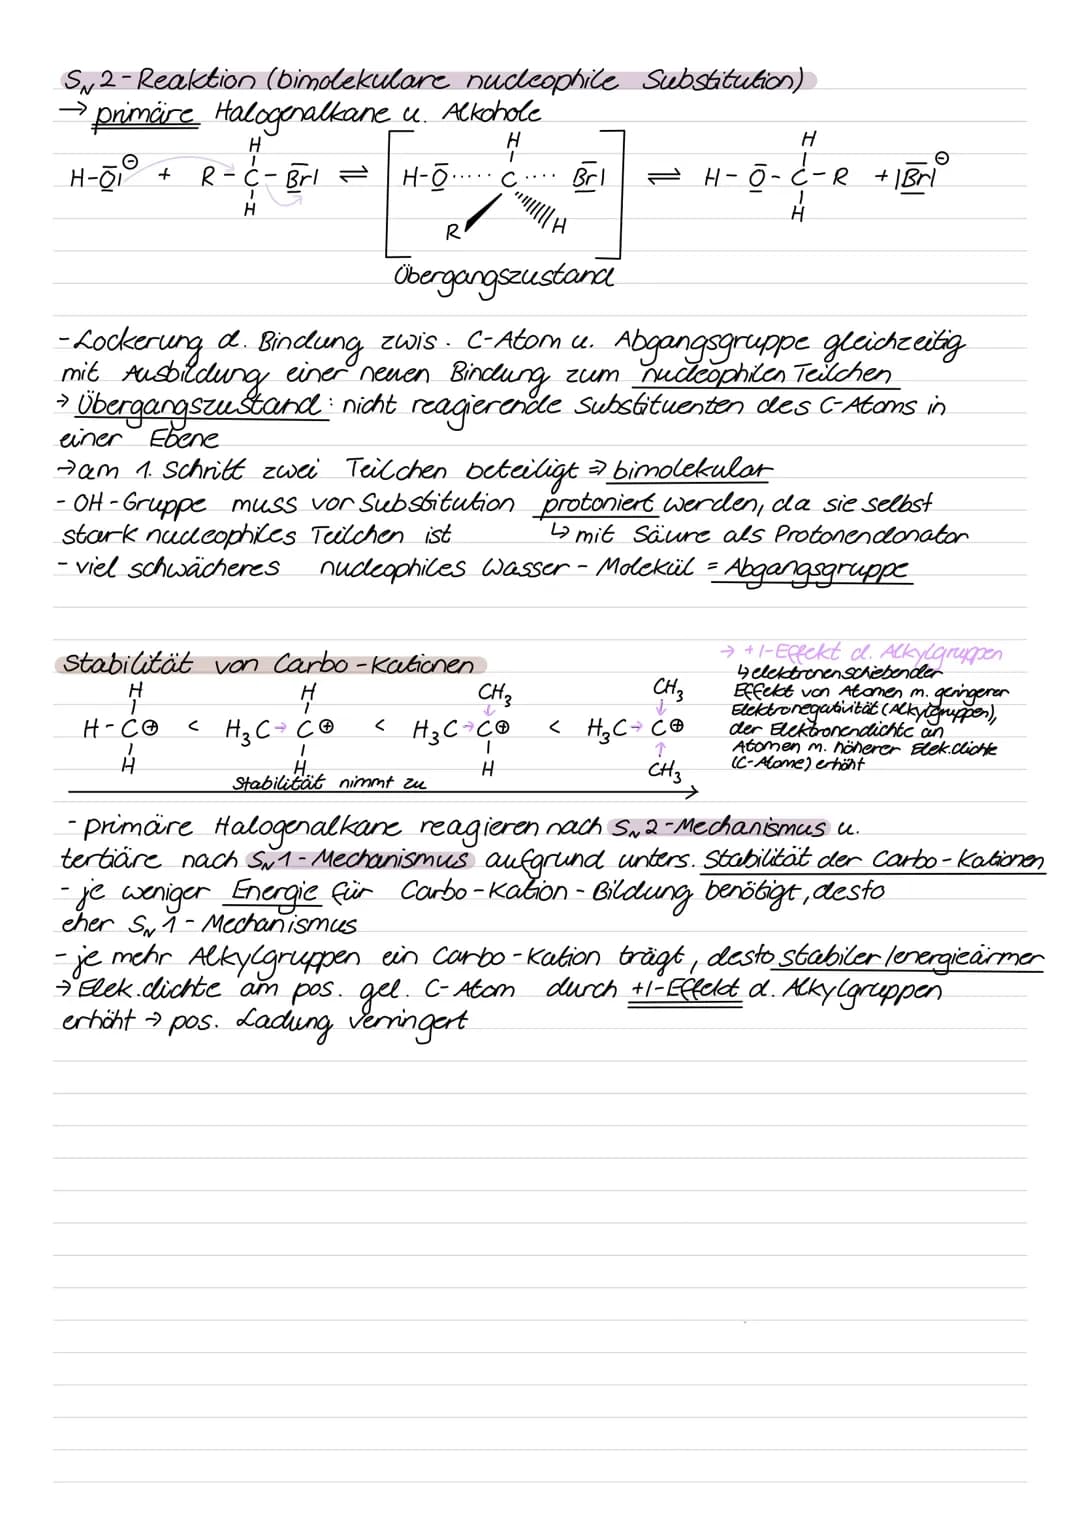 SN2-Reaktion (bimolekulare nucleophile Substitution)
→ primäre Halogenalkane u. Alkohole
H H H
H-O̅|⊖ + R-C-B̅r̅| ⇌ [H-O̅·····C····B̅r̅|] ⇌ H-O̅-C-R + |B̅r̅|⊖
H R H H
Übergangszustand
- Lockerung d. Bindung zwis. C-Atom u. Abgangsgruppe gleichzeitig
mit Ausbildung einer neuen Bindung zum nucleophilen Teilchen
→ Übergangszustand: nicht reagierende Substituenten des C-Atoms in
einer Ebene
→ am 1. Schritt zwei Teilchen beteiligt ⇒ bimolekular
- OH-Gruppe muss vor Substitution protoniert werden, da sie selbst
stark nucleophiles Teilchen ist ↳ mit Säure als Protonendonator
- viel schwächeres nucleophiles Wasser-Molekül = Abgangsgruppe
Stabilität von Carbo-Kationen
→ +I-Effekt d. Alkylgruppen
↳ elektronenschiebender
Effekt von Atomen m. geringerer
Elektronegativität (Alkylgruppen),
der Elektronendichte an
Atomen m. höherer Elek.dichte
(C-Atome) erhöht
H H CH3 CH3
H-C⊕ < H3C→C⊕ < H3C→C⊕ < H3C→C⊕
H H H CH3
Stabilität nimmt zu
- primäre Halogenalkane reagieren nach SN2-Mechanismus u.
tertiäre nach SN1-Mechanismus aufgrund unters. Stabilität der Carbo-Kationen
- je weniger Energie für Carbo-Kation-Bildung benötigt, desto
eher SN1-Mechanismus
- je mehr Alkylgruppen ein Carbo-Kation trägt, desto stabiler/energieärmer
→ Elek.dichte am pos. gel. C-Atom durch +I-Effekt d. Alkylgruppen
erhöht → pos. Ladung verringert